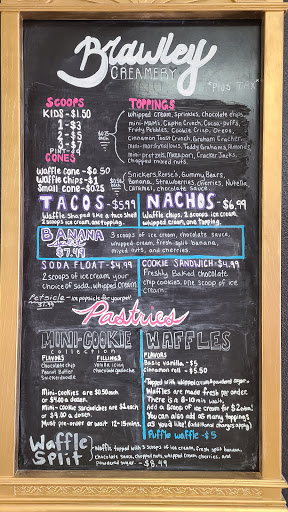 Brawley
CREAMERY
*Plus Tax
SCOOPS
KIDS - $1.50
1 - $3
2 - $5
3 - $7
PINT - $9
CONES
Waffle cone - $0.50
Waffle chips - $1
Small cone - $0.25
TOPPINGS
Whipped cream, Sprinkles, Chocolate chips,
mini-M&Ms, Cap'n Crunch, Cocoa-puffs,
Fruity Pebbles, Cookie Crisp, Oreos,
Cinnamon Toast Crunch, Graham Cracker,
mini-marshmallows, Teddy Grahams, Almonds,
mini-pretzels, Cracker Jacks,
chopped mixed nuts.
Snickers, Reese's, Gummy Bears,
Banana, Strawberries, cherries, Nutella,
Caramel, chocolate sauce.
TACOS - $5.99
Waffle shaped like a taco shell
2 scoops ice cream, one topping.
NACHOS - $6.99
Waffle chips, 2 scoops ice cream,
whipped cream, one topping.
BANANA
Split
$7.99
3 scoops of ice cream, chocolate sauce,
whipped cream, fresh split banana,
mixed nuts, and cherries.
SODA FLOAT - $4.99
2 scoops of ice cream, your
choice of soda, whipped cream.
COOKIE SANDWICH - $4.99
Freshly Baked chocolate
chip cookies, one scoop of ice
cream.
Petsicle - ice popsicle for your pet!
$1.99
Pastries
MINI-COOKIE
collection
FLAVORS
Chocolate chip
Peanut Butter
Snickerdoodle
FILLINGS
Vanilla icing
Chocolate ganache
Mini-cookies are $0.50 each
or $4.00 a dozen.
Mini-cookie sandwiches are $1 each
or $9.00 a dozen.
Must pre-order or wait 12-15 mins.
WAFFLES
FLAVORS
Basic vanilla - $5
Cinnamon roll - $5.50
Topped with whipped cream & powdered sugar.
Waffles are made fresh per order.
There is a 8-10 min wait.
Add a Scoop of ice cream for $2 extra!
You can also add as many toppings
as you'd like! (additional charges apply)
Puffle waffle - $5
Waffle
Split
Waffle topped with 3 scoops of ice cream, fresh split banana,
chocolate sauce, chopped nuts, whipped cream, cherries, and
powdered sugar. - $8.99